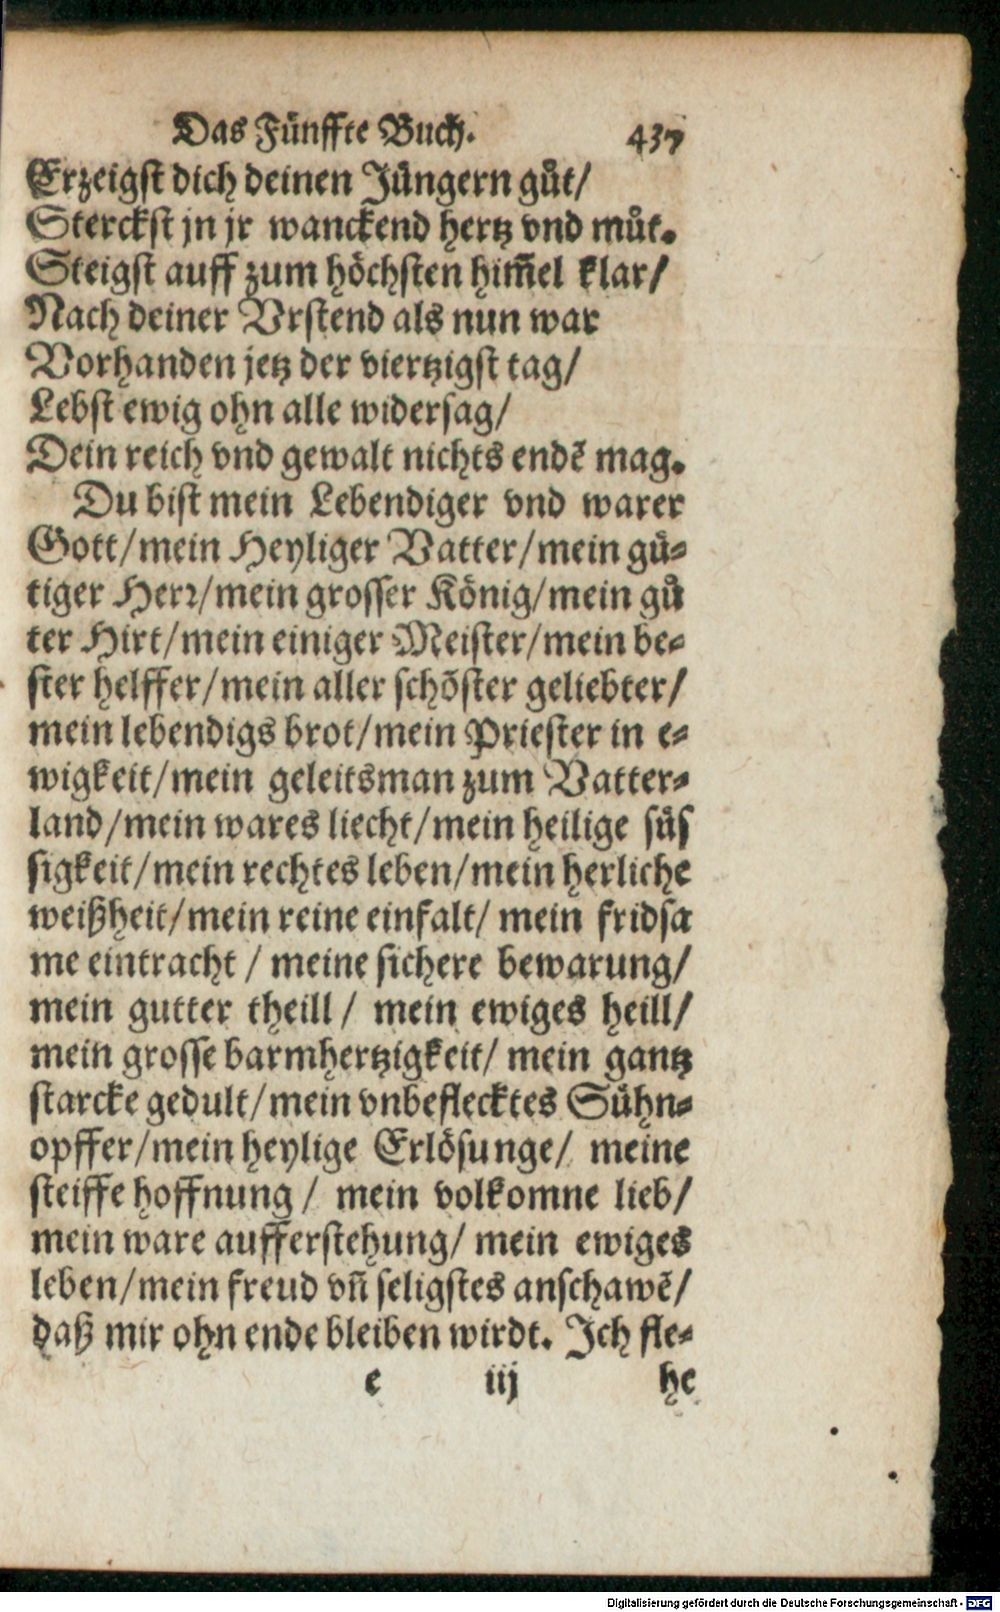 Das Fünffte Buch. 437
Erzeigst dich deinen Jüngern gůt/
Sterckst jn jr wanckend hertz vnd můt.
Steigst auff zum höchsten him̃el klar/
Nach deiner Vrstend als nun war
Vorhanden jetz der viertzigst tag/
Lebst ewig ohn alle widersag/
Dein reich vnd gewalt nichts endẽ mag.
Du bist mein Lebendiger vnd warer
Gott/mein Heyliger Vatter/mein gü-
tiger Herr/mein grosser König/mein gů
ter Hirt/mein einiger Meister/mein be-
ster helffer/mein aller schöster geliebter/
mein lebendigs brot/mein Priester in e-
wigkeit/mein geleitsman zum Vatter-
land/mein wares liecht/mein heilige süs
sigkeit/mein rechtes leben/mein herliche
weißheit/mein reine einfalt/ mein fridsa
me eintracht / meine sichere bewarung/
mein gutter theill / mein ewiges heill/
mein grosse barmhertzigkeit/ mein gantz
starcke gedult/mein vnbeflecktes Sühn-
opffer/mein heylige Erlösunge/ meine
steiffe hoffnung / mein volkomne lieb/
mein ware aufferstehung/ mein ewiges
leben/mein freud vñ seligstes anschawẽ/
daß mir ohn ende bleiben wirdt. Ich fle-
e iij he
Digitalisierung gefördert durch die Deutsche Forschungsgemeinschaft - DFG